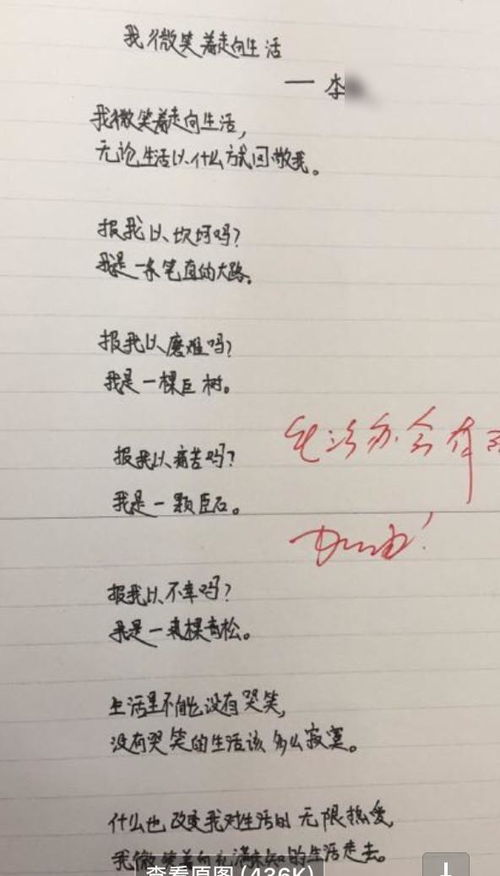 我微笑着走向生活
——李
我微笑着走向生活,
无论生活以什么方式回敬我。
报我以坎坷吗?
我是一条笔直的大路。
报我以磨难吗?
我是一棵巨树。
报我以痛苦吗?
我是一颗巨石。
报我以不幸吗?
我是一棵青松。
生活里不能没有哭笑,
没有哭笑的生活该多么寂寞。
什么也改变我对生活的无限热爱,
我微笑着向充满未知的生活走去。
加油!
查看原图(436K)